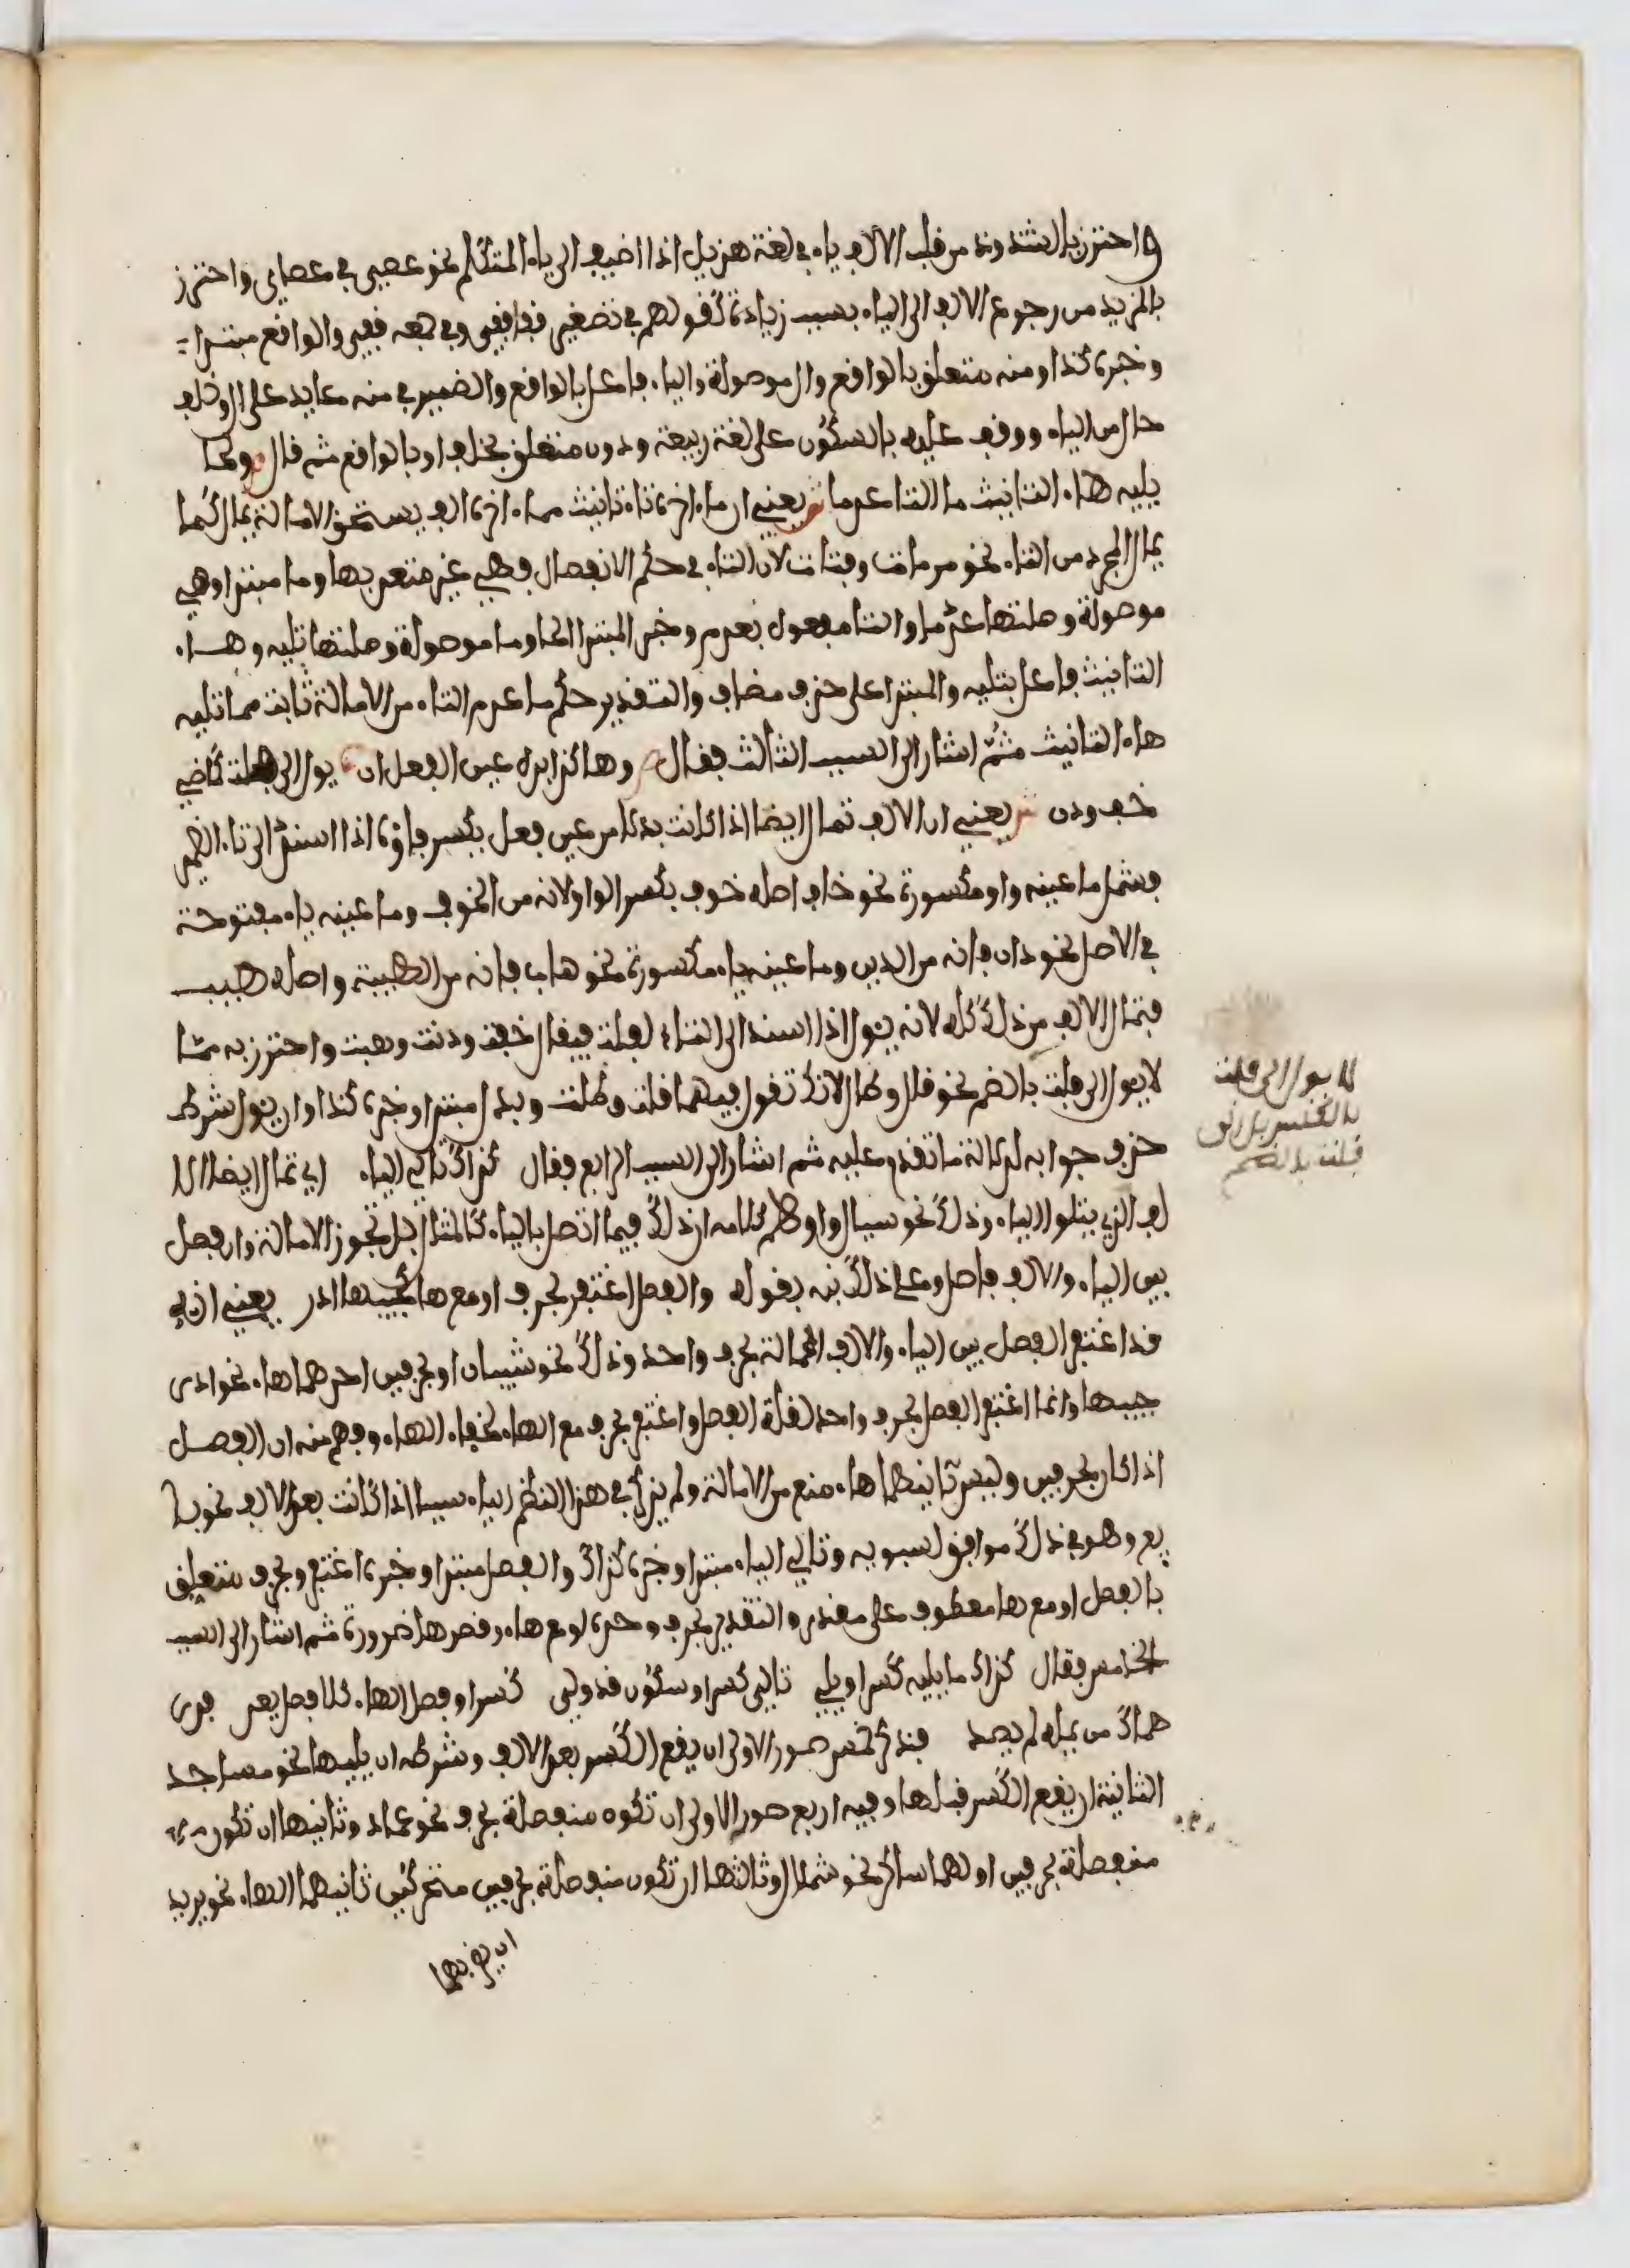 واحترز بالشذوذ من قلب الالف ياء في لغة هذيل اذا اضيف الى ياء المتكلم نحو عصي في عصاي واحترز
بالمزيد من رجوع الالف الى الياء بسبب زيادة كقولهم في تصغير قفا قفي وفي جمعه قفي والواقع مبتدا
وخبره كذا ومنه متعلق بالواقع وال موصولة والياء فاعل بالواقع والضمير في منه عايد على ال وخلف
حال من الياء ووقف عليه بالسكون على لغة ربيعة ودون متعلق بخلف او بالواقع ثم قال ص ولما
يليه هاء التانيث ما الها عدما ش يعني ان ما اخره تاء تانيث مما اخره الف يستحق الامالة يمال كما
يمال المجرد من التاء نحو مرمات وفتات لان التاء في حكم الانفصال فهي غير متعد بها وما مبتدا وهي
موصولة وصلتها عدما والتا مفعول بعدم وخبر المبتدا لما وما موصولة وصلتها تليه وهاء
التانيث فاعل بتليه والمبتدا على حذف مضاف والتقدير حكم ما عدم التاء من الامالة ثابت مما تليه
هاء التانيث ثم اشار الى السبب الثالث فقال ص وهاكذا بدل عين الفعل ان يول الى فلت كماضي
خف ودن ش يعني ان الالف تمال ايضا اذا كانت بدلا من عين فعل بكسر فاؤه اذا اسند الى تاء الضمير
فشمل ما عينه واو مكسورة نحو خاف اصله خوف بكسر الواو لانه من الخوف وما عينه ياء مفتوحة
في الاصل نحو دان فانه من الدين وما عينه ياء مكسورة نحو هاب فانه من الهيبة واصله هيب
فتمال الالف من ذلك كله لانه يئول اذا اسند الى التاء لفلت فيقال خفت ودنت وهبت واحترز به مما
لا يول الى فلت بالضم نحو قال وطال لانك تقول فيهما قلت وطلت وبدل مبتدا وخبره كذا وان يول شرط
حذف جوابه لدلالة ما تقدم عليه ثم اشار الى السبب الرابع فقال كذاك تالي الياء اي تمال ايضا الا
لف الذي يتلو الياء وذلك نحو سيال وظاهر كلامه ان ذلك فيما اتصل بالياء كالمثال بل تجوز الامالة وان فصل
بين الياء والالف فاصل وعلى ذلك نبه بقوله والفصل اغتفر بحرف او مع ها كجيبها ادر يعني انه
قد اغتفر الفصل بين الياء والالف الممالة بحرف واحد وذلك نحو شيبان او بحرفين احدهما هاء نحو ادر
جيبها وانما اغتفر الفصل بحرف واحد لقلة الفصل واغتفر بحرف مع الهاء لخفاء الهاء وفهم منه ان الفصل
اذا كان بحرفين وليس ثانيهما هاء منع من الامالة ولم يذكر في هذا النظم الياء سببا اذا كانت بعد الالف نحو با
يع وهو في ذلك موافق لسبويه وتالي الياء مبتدا وخبره كذاك والفصل مبتدا وخبره اغتفر وبحرف متعلق
بالفصل او مع ها معطوف على مقدر والتقدير بحرف وحده او مع هاء وقصر ها ضرورة ثم اشار الى السبب
الخامس فقال كذاك ما يليه كسر او يلي تالي كسر او سكون قد ولي كسرا وفصل الهاء كلا فصل يعد فدر
هماك من يمله لم يصد فذكر خمس صور الاولى ان يقع الكسر بعد الالف وشرطه ان يليها نحو مساجد
الثانية ان يقع الكسر قبلها وفيه اربع صور الاولى ان تكون منفصلة بحرف نحو عماد وثانيها ان تكون
منفصلة بحرفين اولهما ساكن نحو شملال وثالثها ان تكون منفصلة بحرفين متحركين ثانيهما الهاء نحو يريد
ان يضربها
لا يول الى فلت
بالكسر بل الى
فلت بالضم